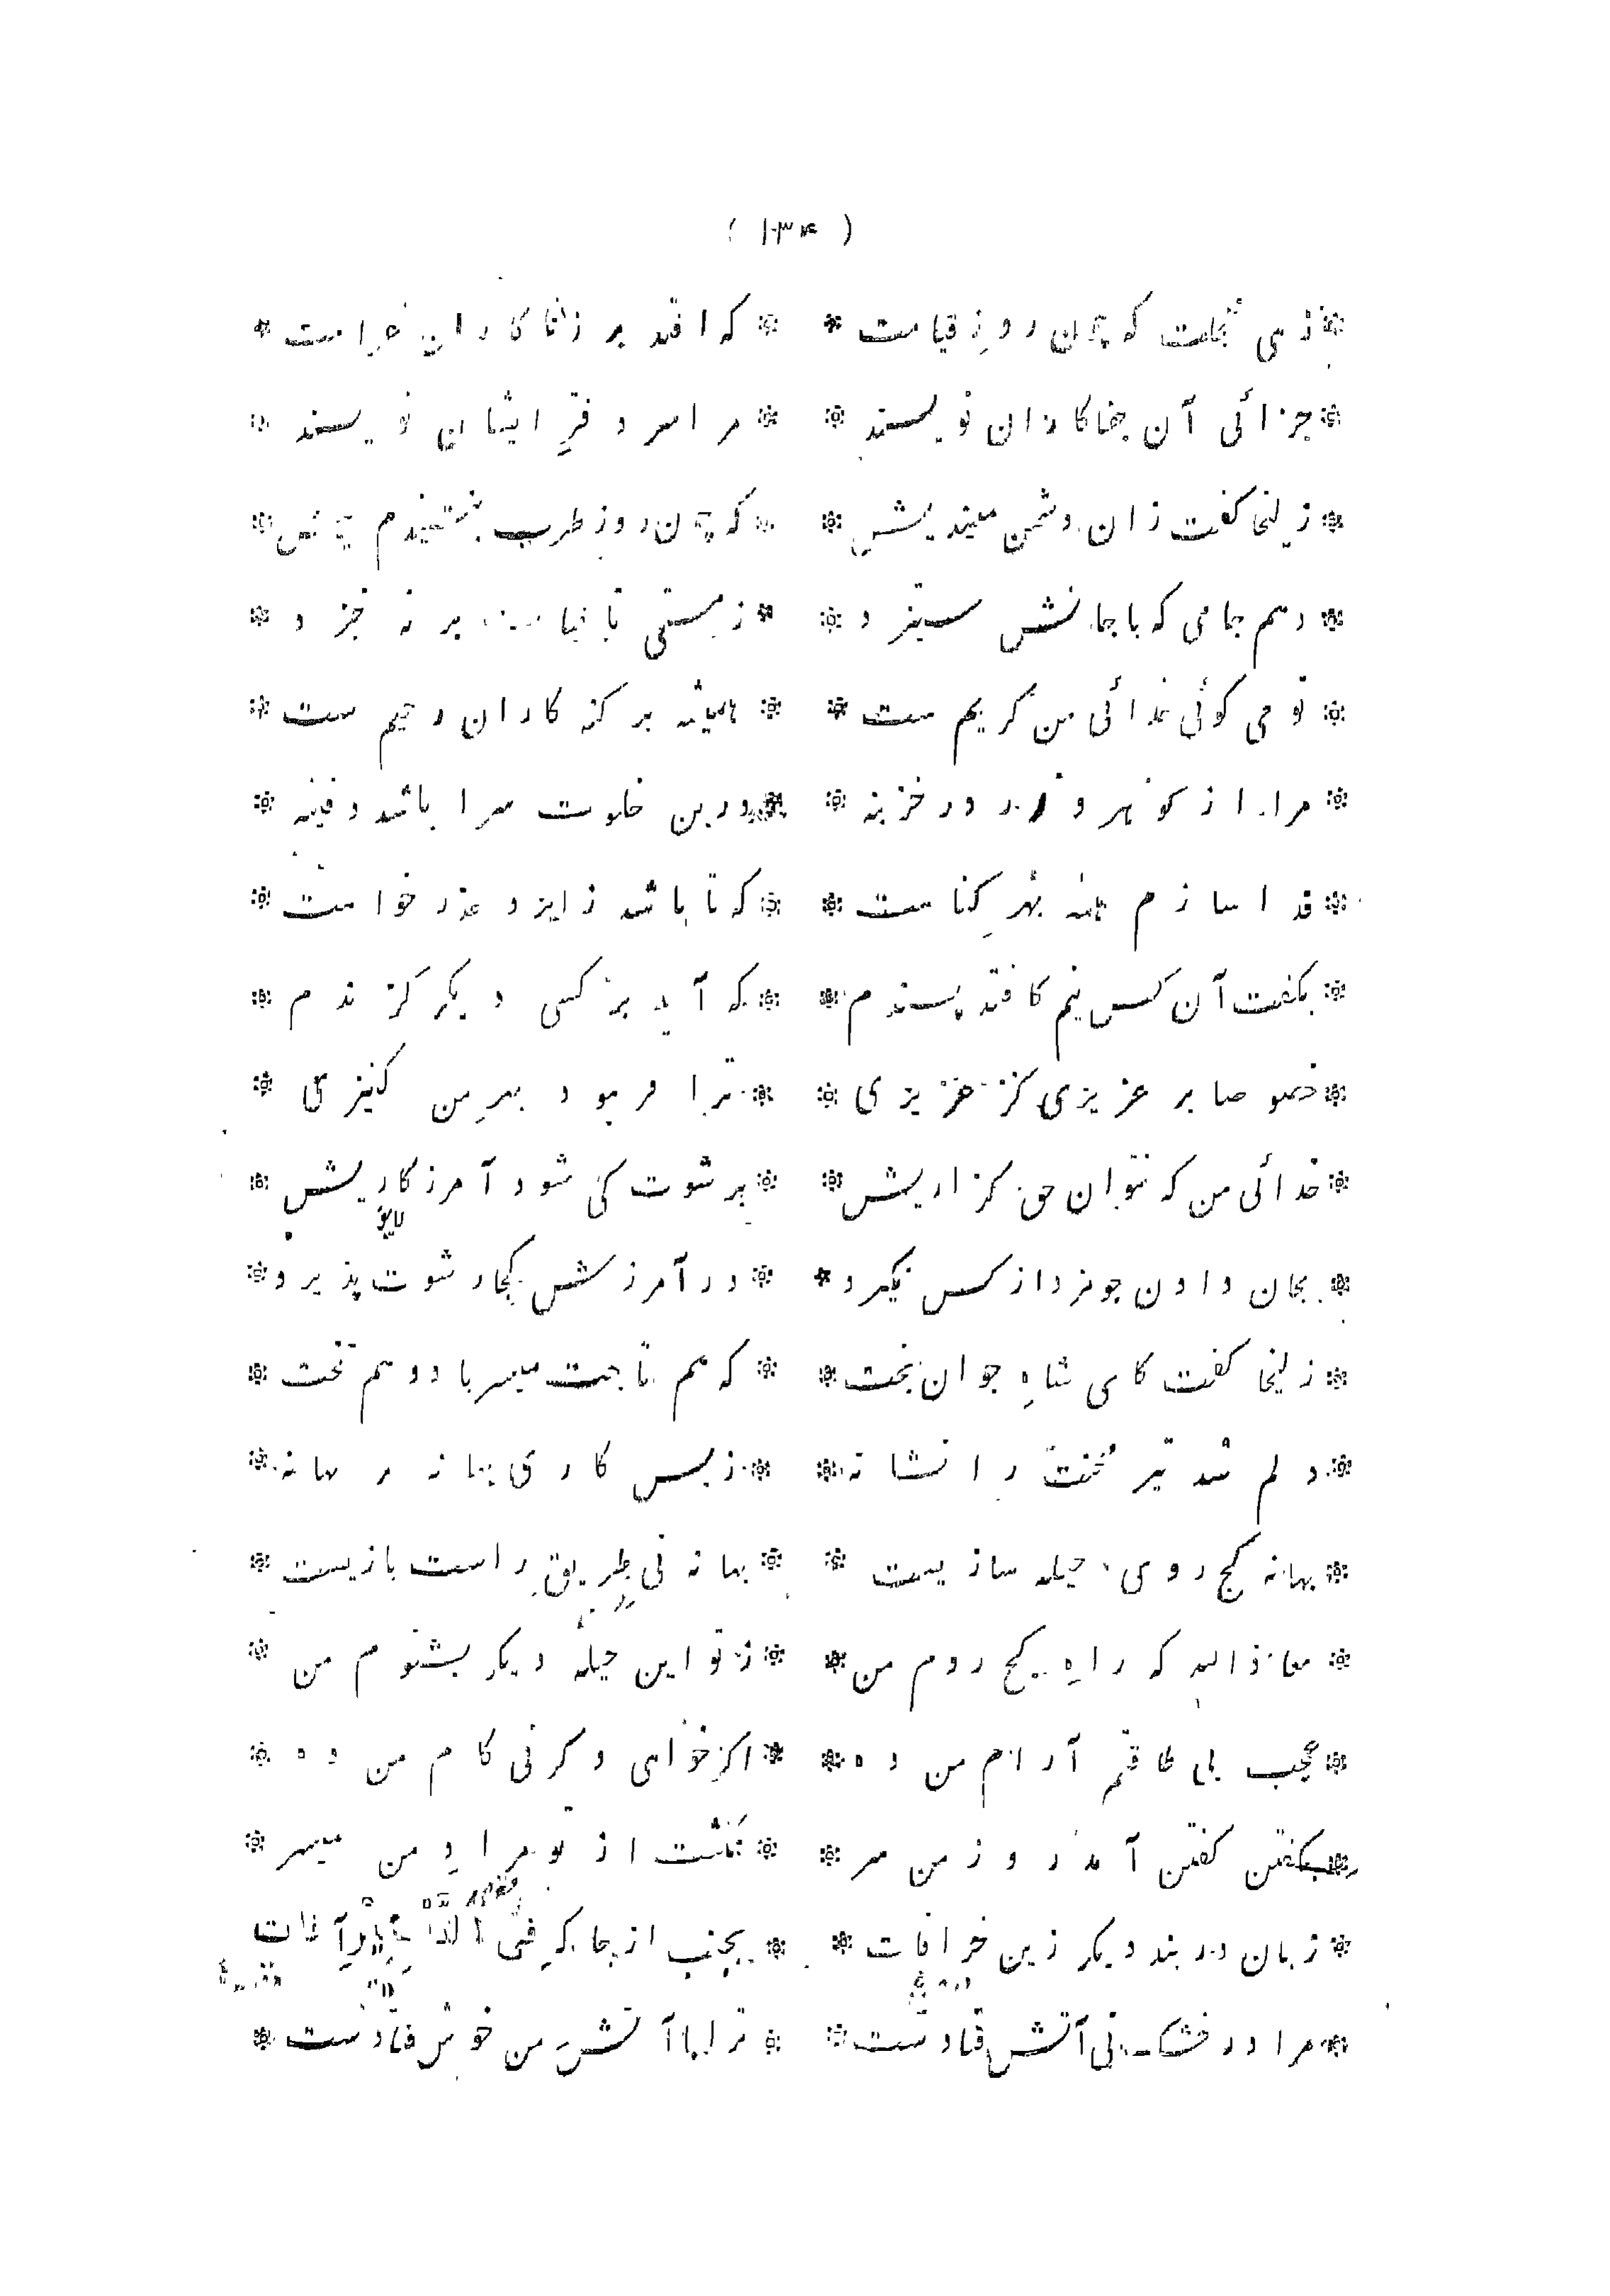 ( ۱۳۴ )
* زهی خجلت که چون روز قیامت * * که افتد بر زناکاران غرامت *
* جزائی آن جفاکاران نویسند * * مرا سر دفترِ ایشان نویسند *
* زلیخا گفت زان دشمن میندیش * * که چون روز طرب بنشیندم پیش *
* دهم جامی که با جانش ستیزد * * ز مستی تا قیامت بر نه خیزد *
* تو می کوئی خدائی من کریم ست * * همیشه بر کنه کاران رحیم ست *
* مرا از کوهر و زر در خزینه * * درین خلوت سرا باشد دفینه *
* فدا سازم همه بهرِ کناهت * * که تا باشد ز ایزد عذر خواهت *
* بکفت آن کس نیم کافتد پسندم * * که آید بر کسی دیکر کزندم *
* خصوصا بر عزیزی کز عزیزی * * ترا فرمود بهرِ من کنیزی *
* خدائی من که نتوان حق کزاریش * * برشوت کی شود آمرزکاریش *
* بجان دادن چو مزد از کس نکیرد * * در آمرزش کجا رشوت پذیرد *
* زلیخا کفت کای شاهِ جوان بخت * * که هم تاجت میسر باد و هم تخت *
* دلم شد تیر محنت را نشانه * * زبس کاری بهانه بر بهانه *
* بهانه کج روی حیله سازیست * * بهانه نی طریق راست بازیست *
* معاذالله که راهِ کج روم من * * ز تو این حیله دیکر بشنوم من *
* عجب بی طاقتم آرام من ده * * اکر خواهی وکر نی کام من ده *
* بکفتن کفتن آمد روز من سر * * نکشت از تو مرادِ من میسر *
* زبان در بند دیکر زین خرافات * * بجنب از جا که فی التاخیر آفات
* مرا در خشک نی آتش فتادست * * ترا با آتشِ من خوش فتادست *